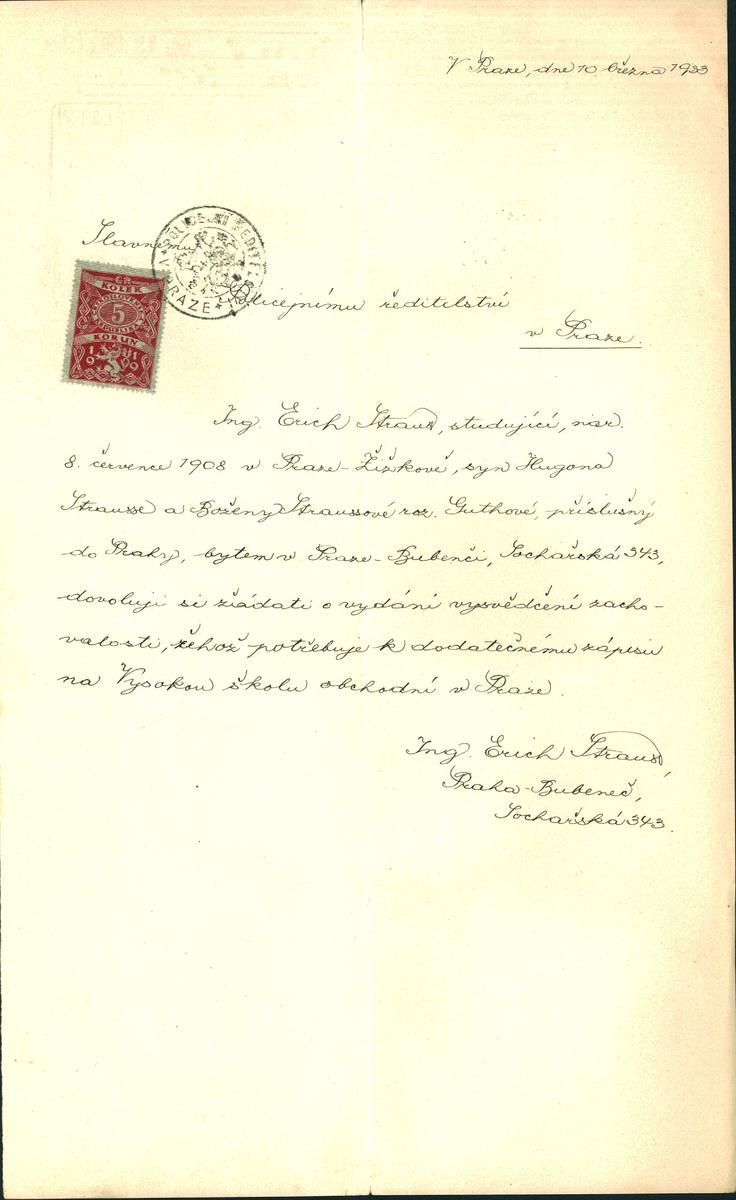 V Praze, dne 10. března 1933
Slavnému
POLICEJNÍ ŘEDITELSTVÍ V PRAZE
Policejnímu ředitelství
v Praze.
KOLEK
5
KORUN
1919
Ing. Erich Straus, studující, nar.
8. července 1908 v Praze-Žižkově, syn Hugona
Strausse a Boženy Straussové roz. Guthové, příslušný
do Prahy, bytem v Praze-Bubenči, Sochařská 343,
dovoluji si žiádati o vydání vysvědčení zacho-
valosti, žehož potřebuje k dodatečnému zápisu
na Vysokou školu obchodní v Praze.
Ing. Erich Straus,
Praha-Bubeneč,
Sochařská 343.